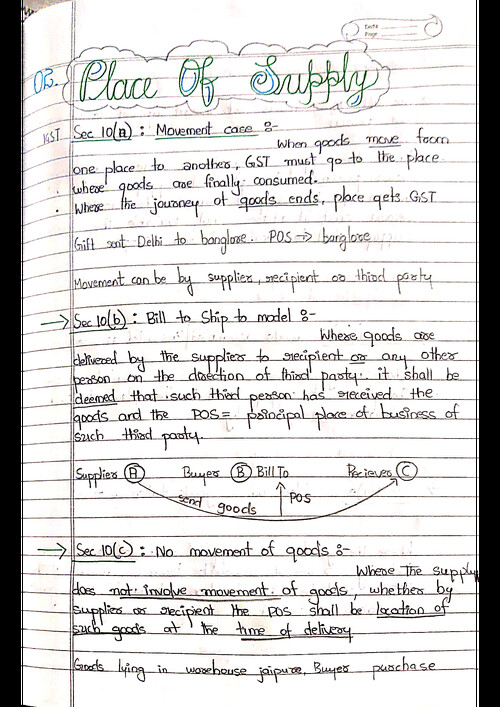 Date
Page
02. Place Of Supply
IGST Sec 10(A) : Movement case :-
When goods move from
one place to another, GST must go to the place
where goods are finally consumed.
. Where the journey of goods ends, place gets GST
Gift sent Delhi to banglore. POS → banglore
Movement can be by supplier, recipient or third party
→ Sec 10(b) : Bill to Ship to model :-
Where goods are
delivered by the supplier to recipient or any other
person on the direction of third party. it shall be
deemed that such third person has received the
goods and the POS = principal place of business of
such third party.
Supplier (A) Buyer (B) Bill To Reciever (C)
send goods ↑ POS
→ Sec 10(c) : No movement of goods :-
Where The supply
does not involve movement of goods, whether by
supplier or recipient the POS shall be location of
such goods at the time of delivery
Goods lying in warehouse jaipur, Buyer purchase